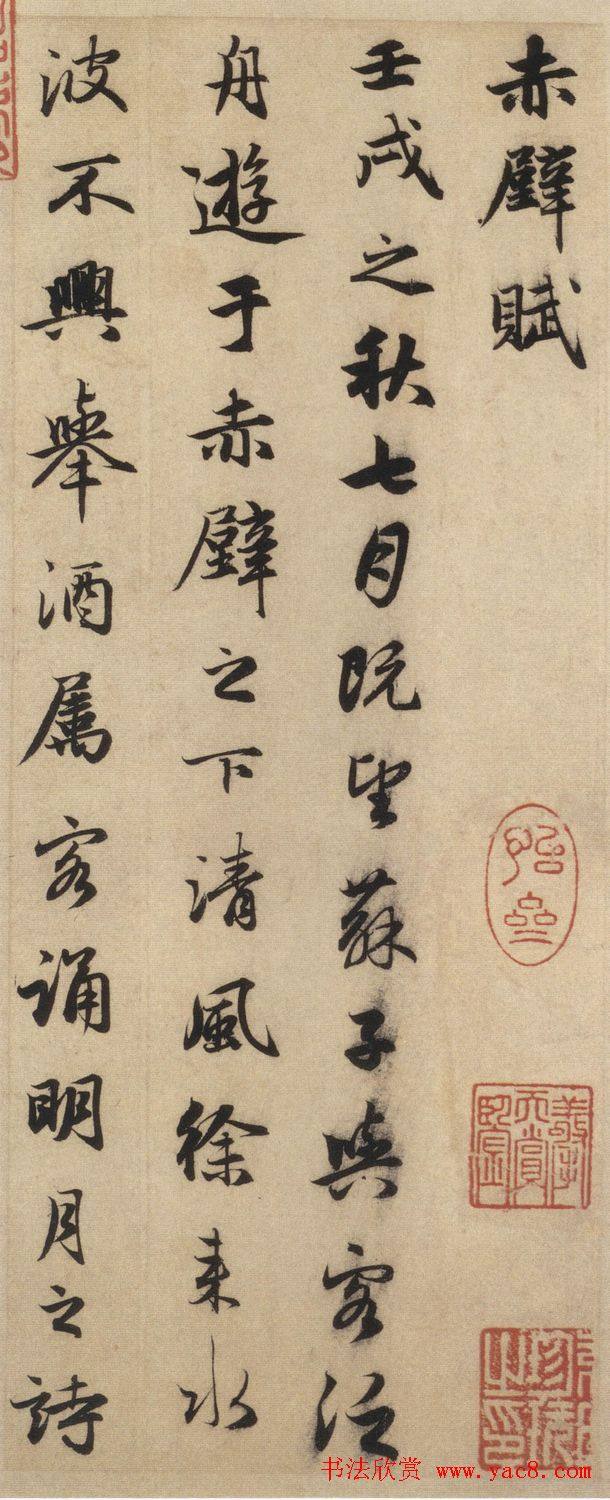 赤壁賦
壬戌之秋七月既望蘇子與客泛
舟遊于赤壁之下清風徐来水
波不興舉酒屬客誦明月之詩
书法欣赏 www.yac8.com